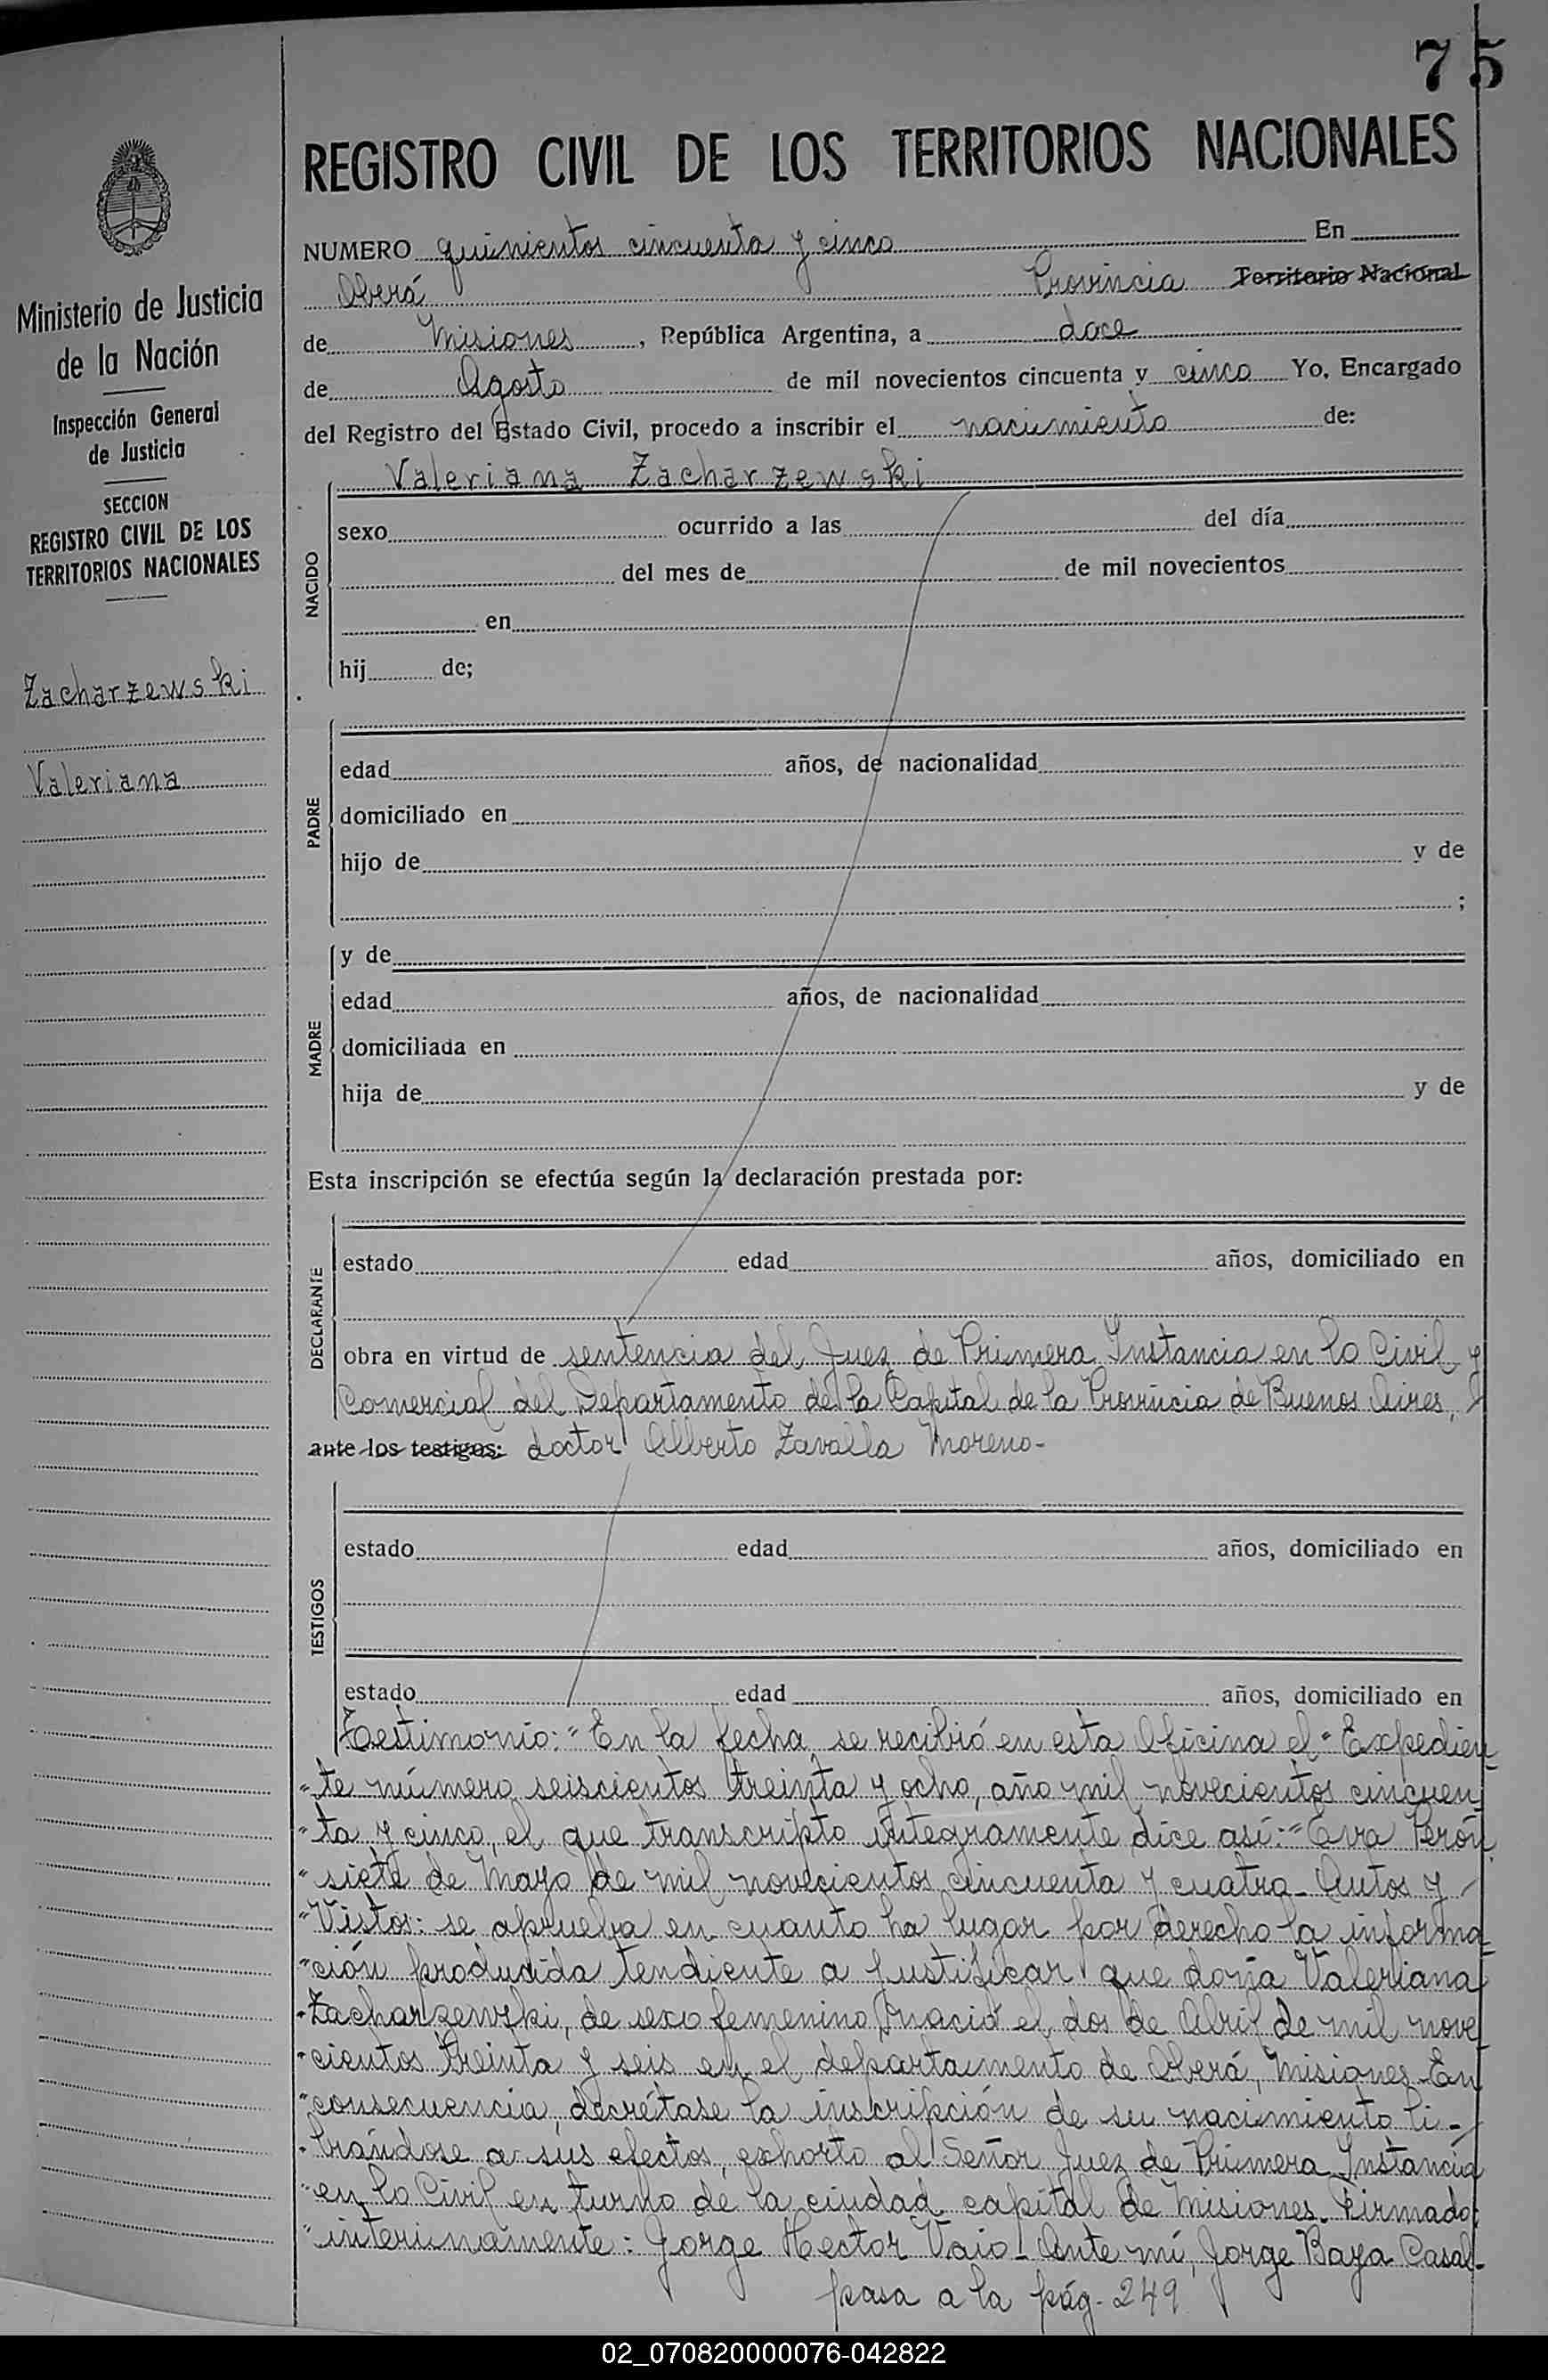 75
REGISTRO CIVIL DE LOS TERRITORIOS NACIONALES
Ministerio de Justicia
de la Nación
Inspección General
de Justicia
SECCION
REGISTRO CIVIL DE LOS
TERRITORIOS NACIONALES
Zacharzewski
Valeriana
NUMERO quinientos cincuenta y cinco En
Oberá Provincia Territorio Nacional
de Misiones, República Argentina, a doce
de Agosto de mil novecientos cincuenta y cinco Yo, Encargado
del Registro del Estado Civil, procedo a inscribir el nacimiento de:
Valeriana Zacharzewski
NACIDO
sexo ocurrido a las del día
del mes de de mil novecientos
en
hij de;
PADRE
edad años, de nacionalidad
domiciliado en
hijo de y de
;
MADRE
y de
edad años, de nacionalidad
domiciliada en
hija de y de
Esta inscripción se efectúa según la declaración prestada por:
DECLARANTE
estado edad años, domiciliado en
obra en virtud de sentencia del Juez de Primera Instancia en lo Civil y
Comercial del Departamento de la Capital de la Provincia de Buenos Aires,
ante los testigos: doctor Alberto Zavalla Moreno-
TESTIGOS
estado edad años, domiciliado en
estado edad años, domiciliado en
Testimonio: "En la fecha se recibió en esta Oficina el "Expedien
"te número seiscientos treinta y ocho, año mil novecientos cincuen
"ta y cinco, el que transcripto íntegramente dice así:- "Eva Perón
"siete de Mayo de mil novecientos cincuenta y cuatro- Autos y
"Vistos: se aprueba en cuanto ha lugar por derecho la informa
"ción producida tendiente a justificar que doña Valeriana
"Zacharzewski, de sexo femenino, nació el dos de Abril de mil nove
"cientos treinta y seis en el departamento de Oberá, Misiones- En
"consecuencia, decrétase la inscripción de su nacimiento li-
"brándose a sus efectos, exhorto al Señor Juez de Primera Instancia
"en lo Civil en turno de la ciudad capital de Misiones. Firmado:
"interinamente: Jorge Hector Vaio- Ante mí, Jorge Baya Casal-
pasa a la pág- 249
02_070820000076-042822